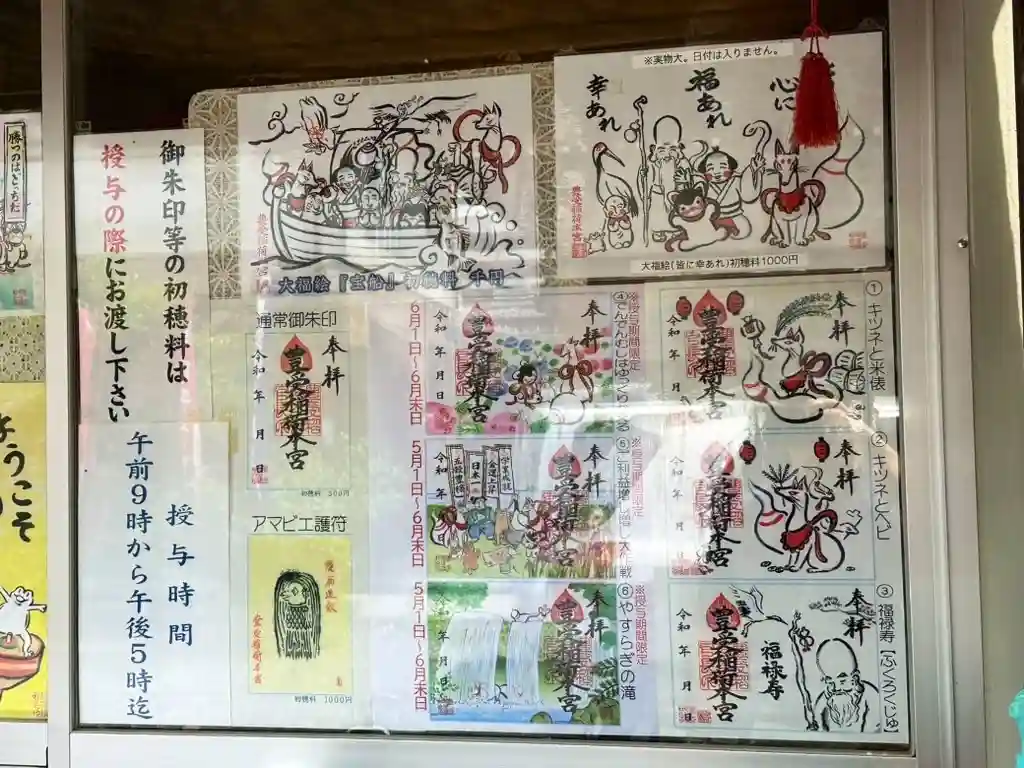 勝つのはどちらだ
ようこそ
御朱印等の初穂料は
授与の際にお渡し下さい
授与時間
午前9時から午後5時迄
豊榮稲荷本宮
大福絵『宝船』初穂料 千円
※実物大。日付は入りません。
心に
福あれ
幸あれ
大福絵(皆に幸あれ)初穂料1000円
通常御朱印
奉拝
豊栄稲荷本宮
令和 年 月 日
初穂料 500円
アマビエ護符
初穂料 1000円
①キツネと米俵
奉拝
豊栄稲荷本宮
令和 年 月 日
②キツネとヘビ
奉拝
豊栄稲荷本宮
令和 年 月 日
③福禄寿【ふくろくじゅ】
奉拝
福禄寿
豊栄稲荷本宮
令和 年 月 日
※授与期間限定
④でんでんむしはゆっくり
6月1日~6月末日
奉拝
豊栄稲荷本宮
令和 年 月 日
※授与期間限定
⑤ご利益増し増し大作戦
5月1日~6月末日
奉拝
日本一
豊栄稲荷本宮
令和 年 月 日
※授与期間限定
⑥やすらぎの滝
5月1日~6月末日
奉拝
豊栄稲荷本宮
令和 年 月 日